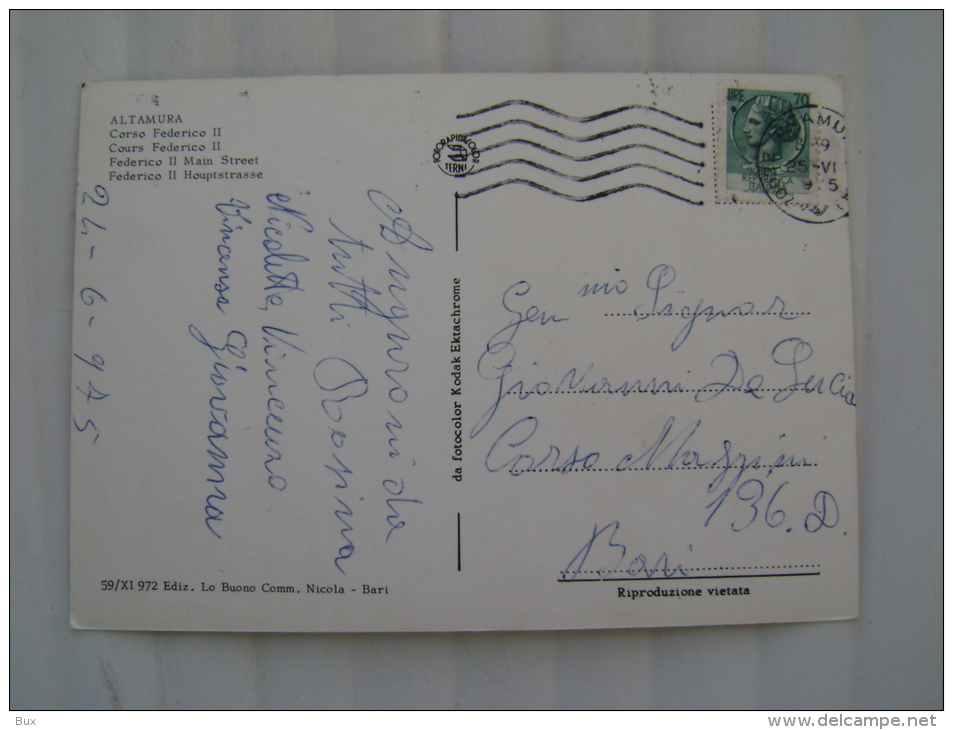 ALTAMURA
Corso Federico II
Cours Federico II
Federico II Main Street
Federico II Houptstrasse
24-6-975
Auguroni da
tutti Rosina
Nicoletta, Vincenzo
Vincenza Giovanna
59/XI 972 Ediz. Lo Buono Comm. Nicola - Bari
FOTORAPIDACOLOR
TERNI
da fotocolor Kodak Ektachrome
LIRE 70
25-VI
Gen mo Signor
Giovanni De Lucia
Corso Mazzini
136.D.
Bari
Riproduzione vietata
Bux
www.delcampe.net